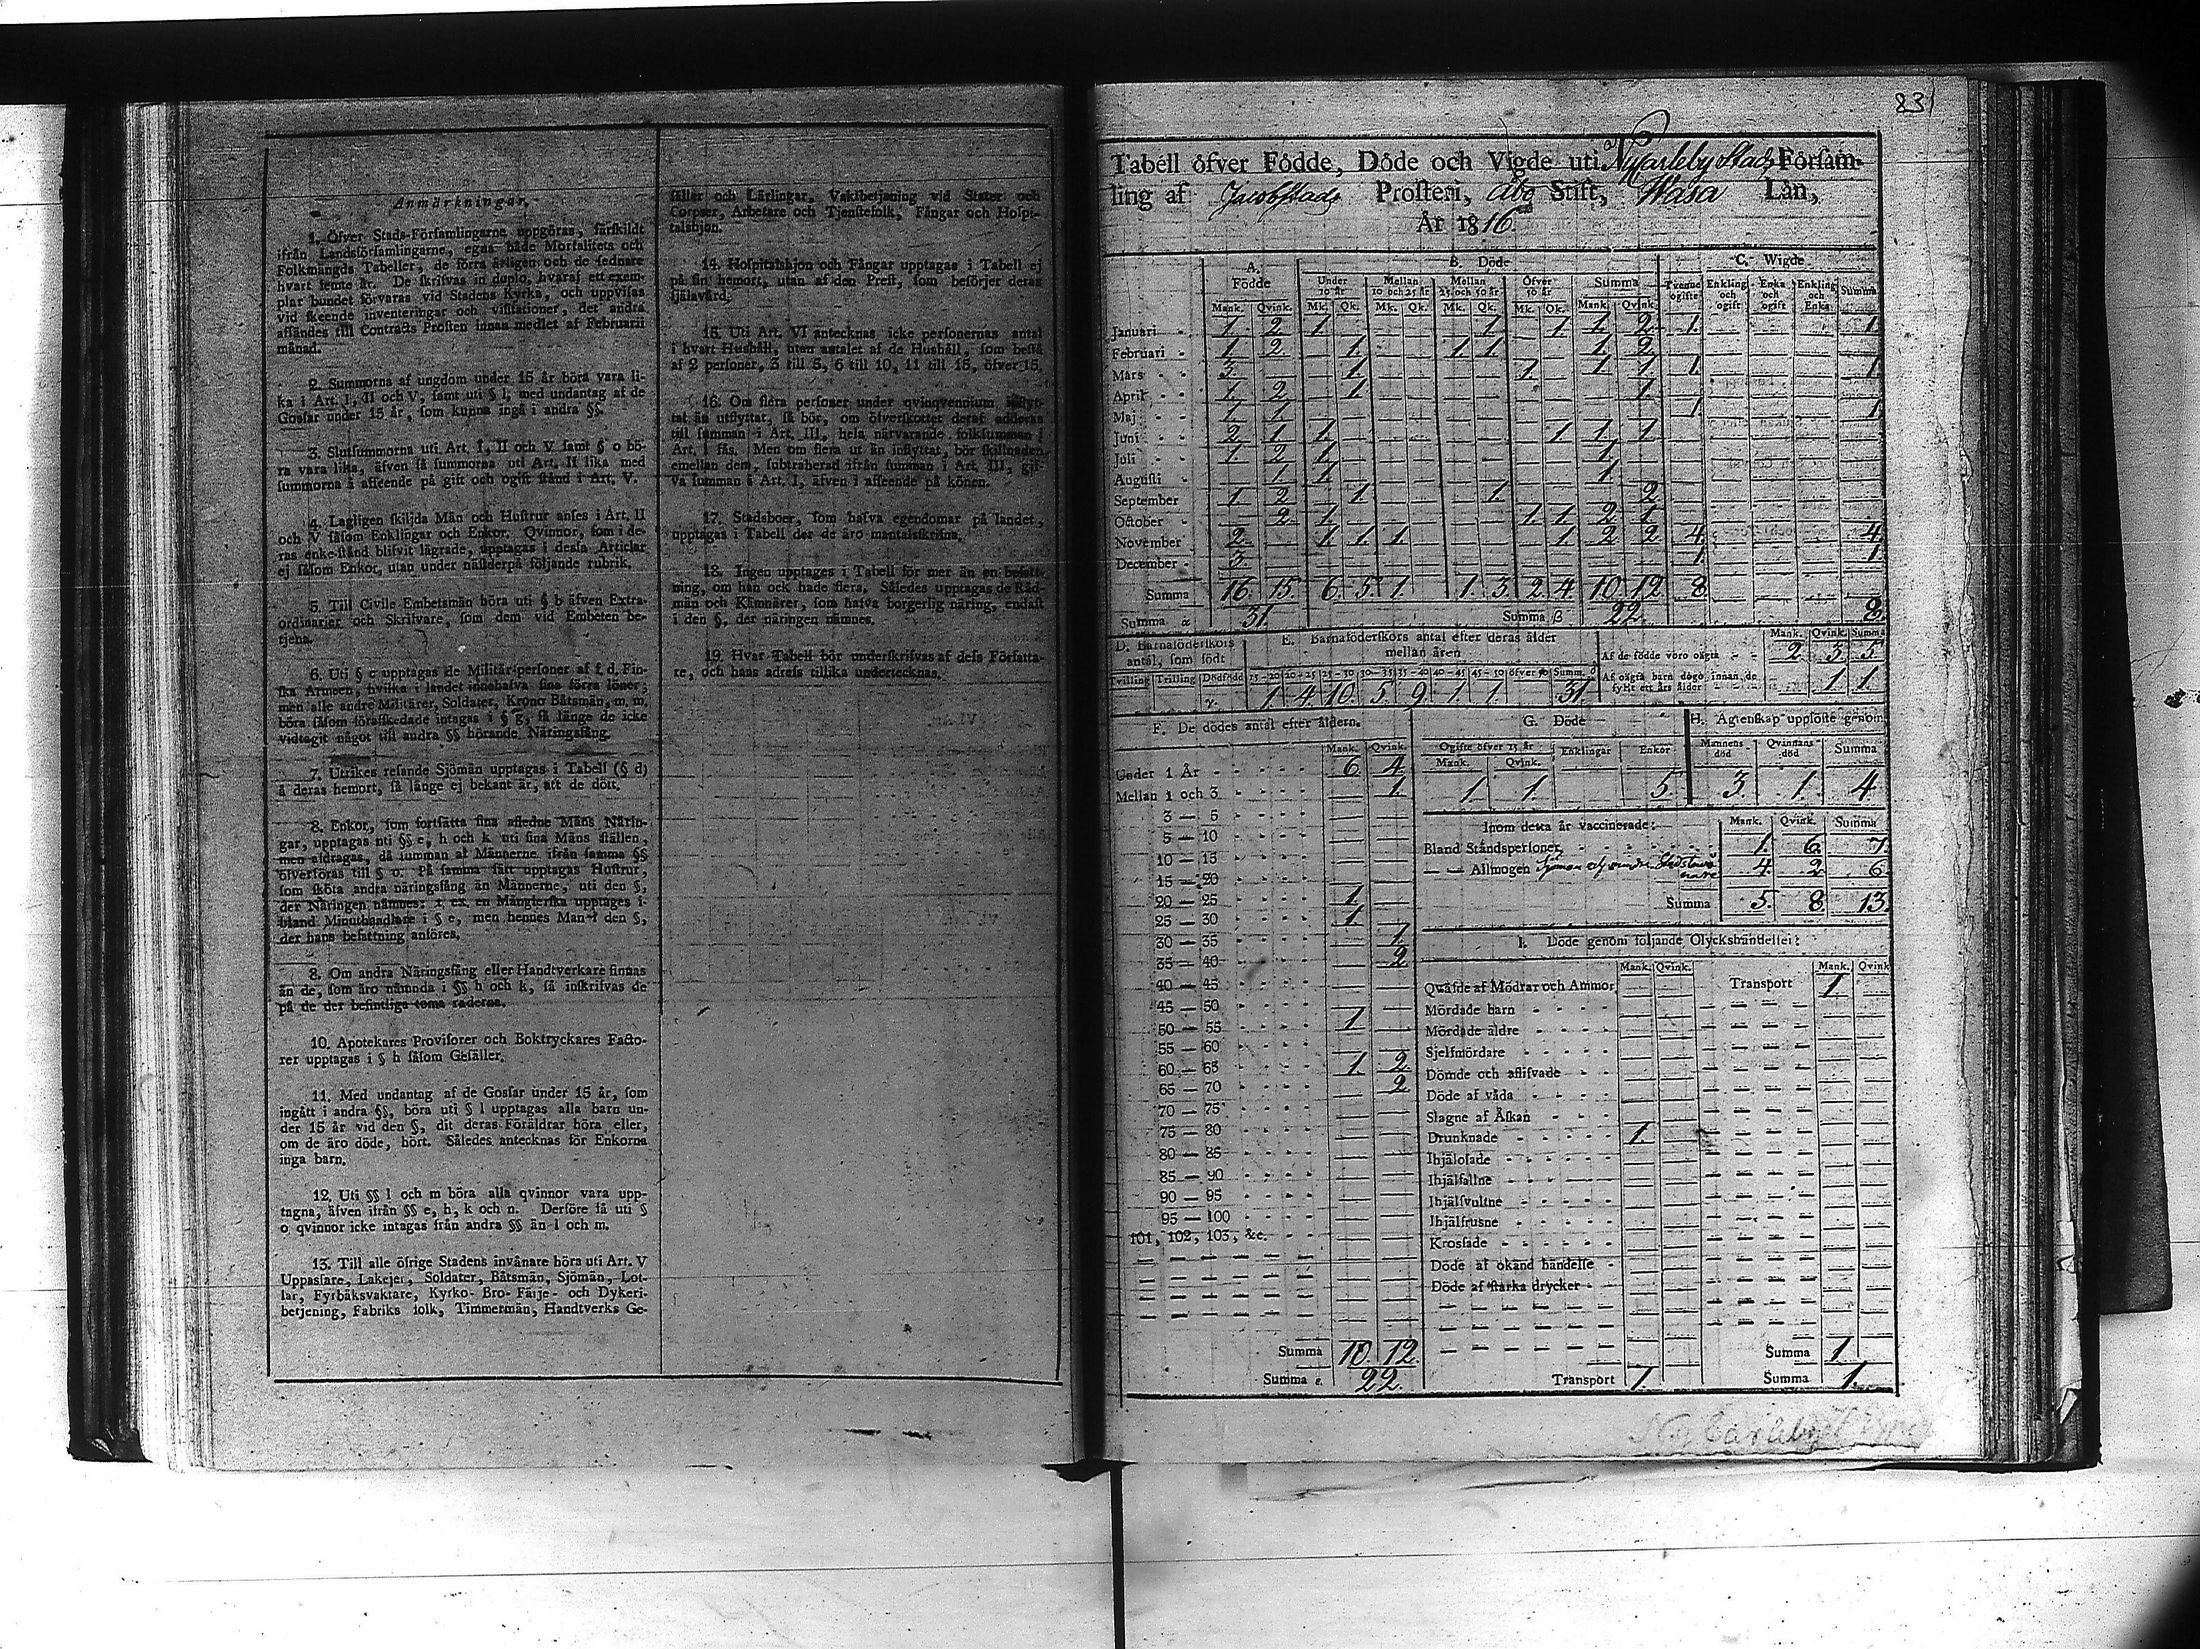 Anmärkningar.
1. Öfver Stads-Församlingarne uppgöras, särskildt
ifrån Landsförsamlingarne, egna både Mortalitets och
Folkmängds Tabeller, de förra årligen och de sednare
hvart femte år. De skrifvas in duplo, hvaraf ett exem-
plar bundet förvaras vid Stadens Kyrka, och uppvisas
vid skeende inventeringar och visitationer, det andra
afsändes till Contracts Prosten innan medlet af Februarii
månad.
2. Summorna af ungdom under 15 år böra vara li-
ka i Art. I, II och V, samt uti § l, med undantag af de
Gossar under 15 år, som kunna ingå i andra §§.
3. Slutsummorna uti Art. I, II och V samt § o bö-
ra vara lika, äfven så summorna uti Art. II lika med
summorna å afseende på gift och ogift stånd i Art. V.
4. Lagligen skiljda Män och Hustrur anses i Art. II
och V såsom Enklingar och Enkor. Qvinnor, som i de-
ras enke-stånd blifvit lägrade, upptagas i dessa Articlar
ej såsom Enkor, utan under näst derpå följande rubrik.
5. Till Civile Embetsmän böra uti § b äfven Extra-
ordinarier och Skrifvare, som dem vid Embeten be-
tjena.
6. Uti § c upptagas de Militär-personer af f. d. Fin-
ska Armeen, hvilka i landet innehafva sina förra löner;
men alle andre Militärer, Soldater, Krono Båtsmän, m. m.
böra såsom förafskedade intagas i § g, så länge de icke
vidtagit något till andra §§ hörande Näringsfång.
7. Utrikes resande Sjömän upptagas i Tabell (§ d)
å deras hemort, så länge ej bekant är, att de dött.
8. Enkor, som fortsätta sina aflednе Mäns Närin-
gar, upptagas uti §§ e, h och k uti sina Mäns ställen,
men afdragas, då summan af Männerne ifrån samma §§
öfverföras till § o. På samma sätt upptagas Hustrur,
som sköta andra näringsfång än Männerne, uti den §,
der Näringen nämnes: t. ex. en Månglerska upptages i-
bland Minuthandlare i § e, men hennes Man i den §,
der hans befattning anföres.
8. Om andra Näringsfång eller Handtverkare finnas
än de, som äro nämnda i §§ h och k, så inskrifvas de
på de der befintliga toma raderna.
10. Apotekares Provisorer och Boktryckares Facto-
rer upptagas i § h såsom Gesäller.
11. Med undantag af de Gossar under 15 år, som
ingått i andra §§, böra uti § l upptagas alla barn un-
der 15 år vid den §, dit deras Föräldrar höra eller,
om de äro döde, hört. Således antecknas för Enkorna
inga barn.
12. Uti §§ l och m böra alla qvinnor vara upp-
tagna, äfven ifrån §§ e, h, k och n. Derföre få uti §
o qvinnor icke intagas från andra §§ än l och m.
13. Till alle öfrige Stadens invånare höra uti Art. V
Uppassare, Lakejer, Soldater, Båtsmän, Sjömän, Lot-
sar, Fyrbåksvaktare, Kyrko- Bro- Färje- och Dykeri-
betjening, Fabriks folk, Timmermän, Handtverks Ge-
säller och Lärlingar, Vaktbetjening vid Stater och
Corpser, Arbetare och Tjenstefolk, Fångar och Hospi-
talshjon.
14. Hospitalshjon och Fångar upptagas i Tabell ej
på sin hemort, utan af den Prest, som besörjer deras
själavård.
15. Uti Art. VI antecknas icke personernas antal
i hvart Hushåll, utan antalet af de Hushåll, som bestå
af 2 personer, 3 till 5, 6 till 10, 11 till 15, öfver 15.
16. Om flera personer under qvinqvennium inflyt-
tat än utflyttat, så bör, om öfverskottet deraf adderas
till summan i Art. III, hela närvarande folksumman i
Art. I fås. Men om flera ut än inflyttat, bör skillnaden
emellan dem, subtraherad ifrån summan i Art. III, gif-
va summan i Art. I, äfven i afseende på könen.
17. Stadsboer, som hafva egendomar på landet,
upptagas i Tabell der de äro mantalsskrifna.
18. Ingen upptages i Tabell för mer än en befatt-
ning, om han ock hade flera. Således upptagas de Råd-
män och Kämnärer, som hafva borgerlig näring, endast
i den §, der näringen nämnes.
19. Hvar Tabell bör underskrifvas af dess Författa-
re, och hans adress tillika undertecknas.
831
Tabell öfver Födde, Döde och Vigde uti Nycarleby Stads Försam-
ling af Jacobstads Prosteri, Åbo Stift, Wasa Län,
År 1816
A. Födde B. Döde C. Wigde
Under 10 år Mellan 10 och 25 år Mellan 25 och 50 år Öfver 50 år Summa Tvenne ogifte Enkling och ogift Enka och ogift Enkling och Enka Summa
Mank. Qvink. Mk. Qk. Mk. Qk. Mk. Qk. Mk. Qk. Mank. Qvink.
Januari - 1 2 1 — — — — 1 — 1 1 2 1. — — — 1.
Februari - 1 2 — 1 — — 1 1 — — 1 2 — — — —
Mars - - 3 — — 1 — — — — 1 — 1 1 1. — — — 1.
April - - 1 2 — 1 — — — — — — — 1
Maj - - 1 1 — — — — — — — — — — 1 — — — 1
Juni - - 2 1 1 — — — — — — 1 1 1
Juli - - 1 2 1 — — — — — — — 1 —
Augusti - — 1 1 — — — — — — — 1 —
September 1 2 — 1 — — — 1 — — — 2
October - — 2 1 — — — — — 1 1 2 1
November - 2 — 1 1 1 — — — — 1 2 2 4. — — — 4.
December - 3 — — — — — — — — — — — 1 — — — 1
Summa 16. 15. 6. 5. 1. 1. 3. 2. 4. 10. 12. 8.
Summa α 31. Summa β 22. 8.
D. Barnaföderskors antal, som födt
Tvilling Trilling Dödfödd
E. Barnaföderskors antal efter deras ålder mellan åren
15—20 20—25 25—30 30—35 35—40 40—45 45—50 öfver 50 Summ.
1. 4. 10. 5. 9. 1. 1. 31.
Mank. Qvink. Summa
Af de födde voro oägta - - 2 3 5
Af oägta barn dögo innan de fyllt ett års ålder — 1 1
F. De dödes antal efter åldern.
Mank. Qvink.
Under 1 År - - - - - 6. 4.
Mellan 1 och 3 - - - - — 1.
3 — 5
5 — 10
10 — 15
15 — 20
20 — 25 1. —
25 — 30 1. —
30 — 35 — 1.
35 — 40 — 2
40 — 45
45 — 50
50 — 55 1 —
55 — 60
60 — 65 1. 2
65 — 70 — 2
70 — 75
75 — 80
80 — 85
85 — 90
90 — 95
95 — 100
101, 102, 103, &c.
Summa 10. 12.
Summa ε. 22.
G. Döde
Ogifte öfver 15 år Enklingar Enkor
Mank. Qvink.
1. 1. 5.
H. Ägtenskap upplöste genom
Mannens död Qvinnans död Summa
3. 1. 4
Inom detta år vaccinerade: Mank. Qvink. Summa
Bland Ståndspersoner - - - 1. 6. 7.
— — Allmogen Sjömän och andre 4. 2. 6.
Summa 5. 8. 13.
I. Döde genom följande Olyckshändelser:
Mank. Qvink. Mank. Qvink
Qväfde af Mödrar och Ammor Transport 1
Mördade barn - - - -
Mördade äldre - - - -
Sjelfmördare - - - - -
Dömde och aflifvade - - -
Döde af våda - - - - -
Slagne af Åskan - - - -
Drunknade - - - - - 1.
Ihjälosade - - - - -
Ihjälfallne - - - - -
Ihjälsvultne - - - - -
Ihjälfrusne - - - - -
Krossade - - - - - -
Döde af okänd händelse -
Döde af starka drycker -
Summa 1
Transport 1. Summa 1.